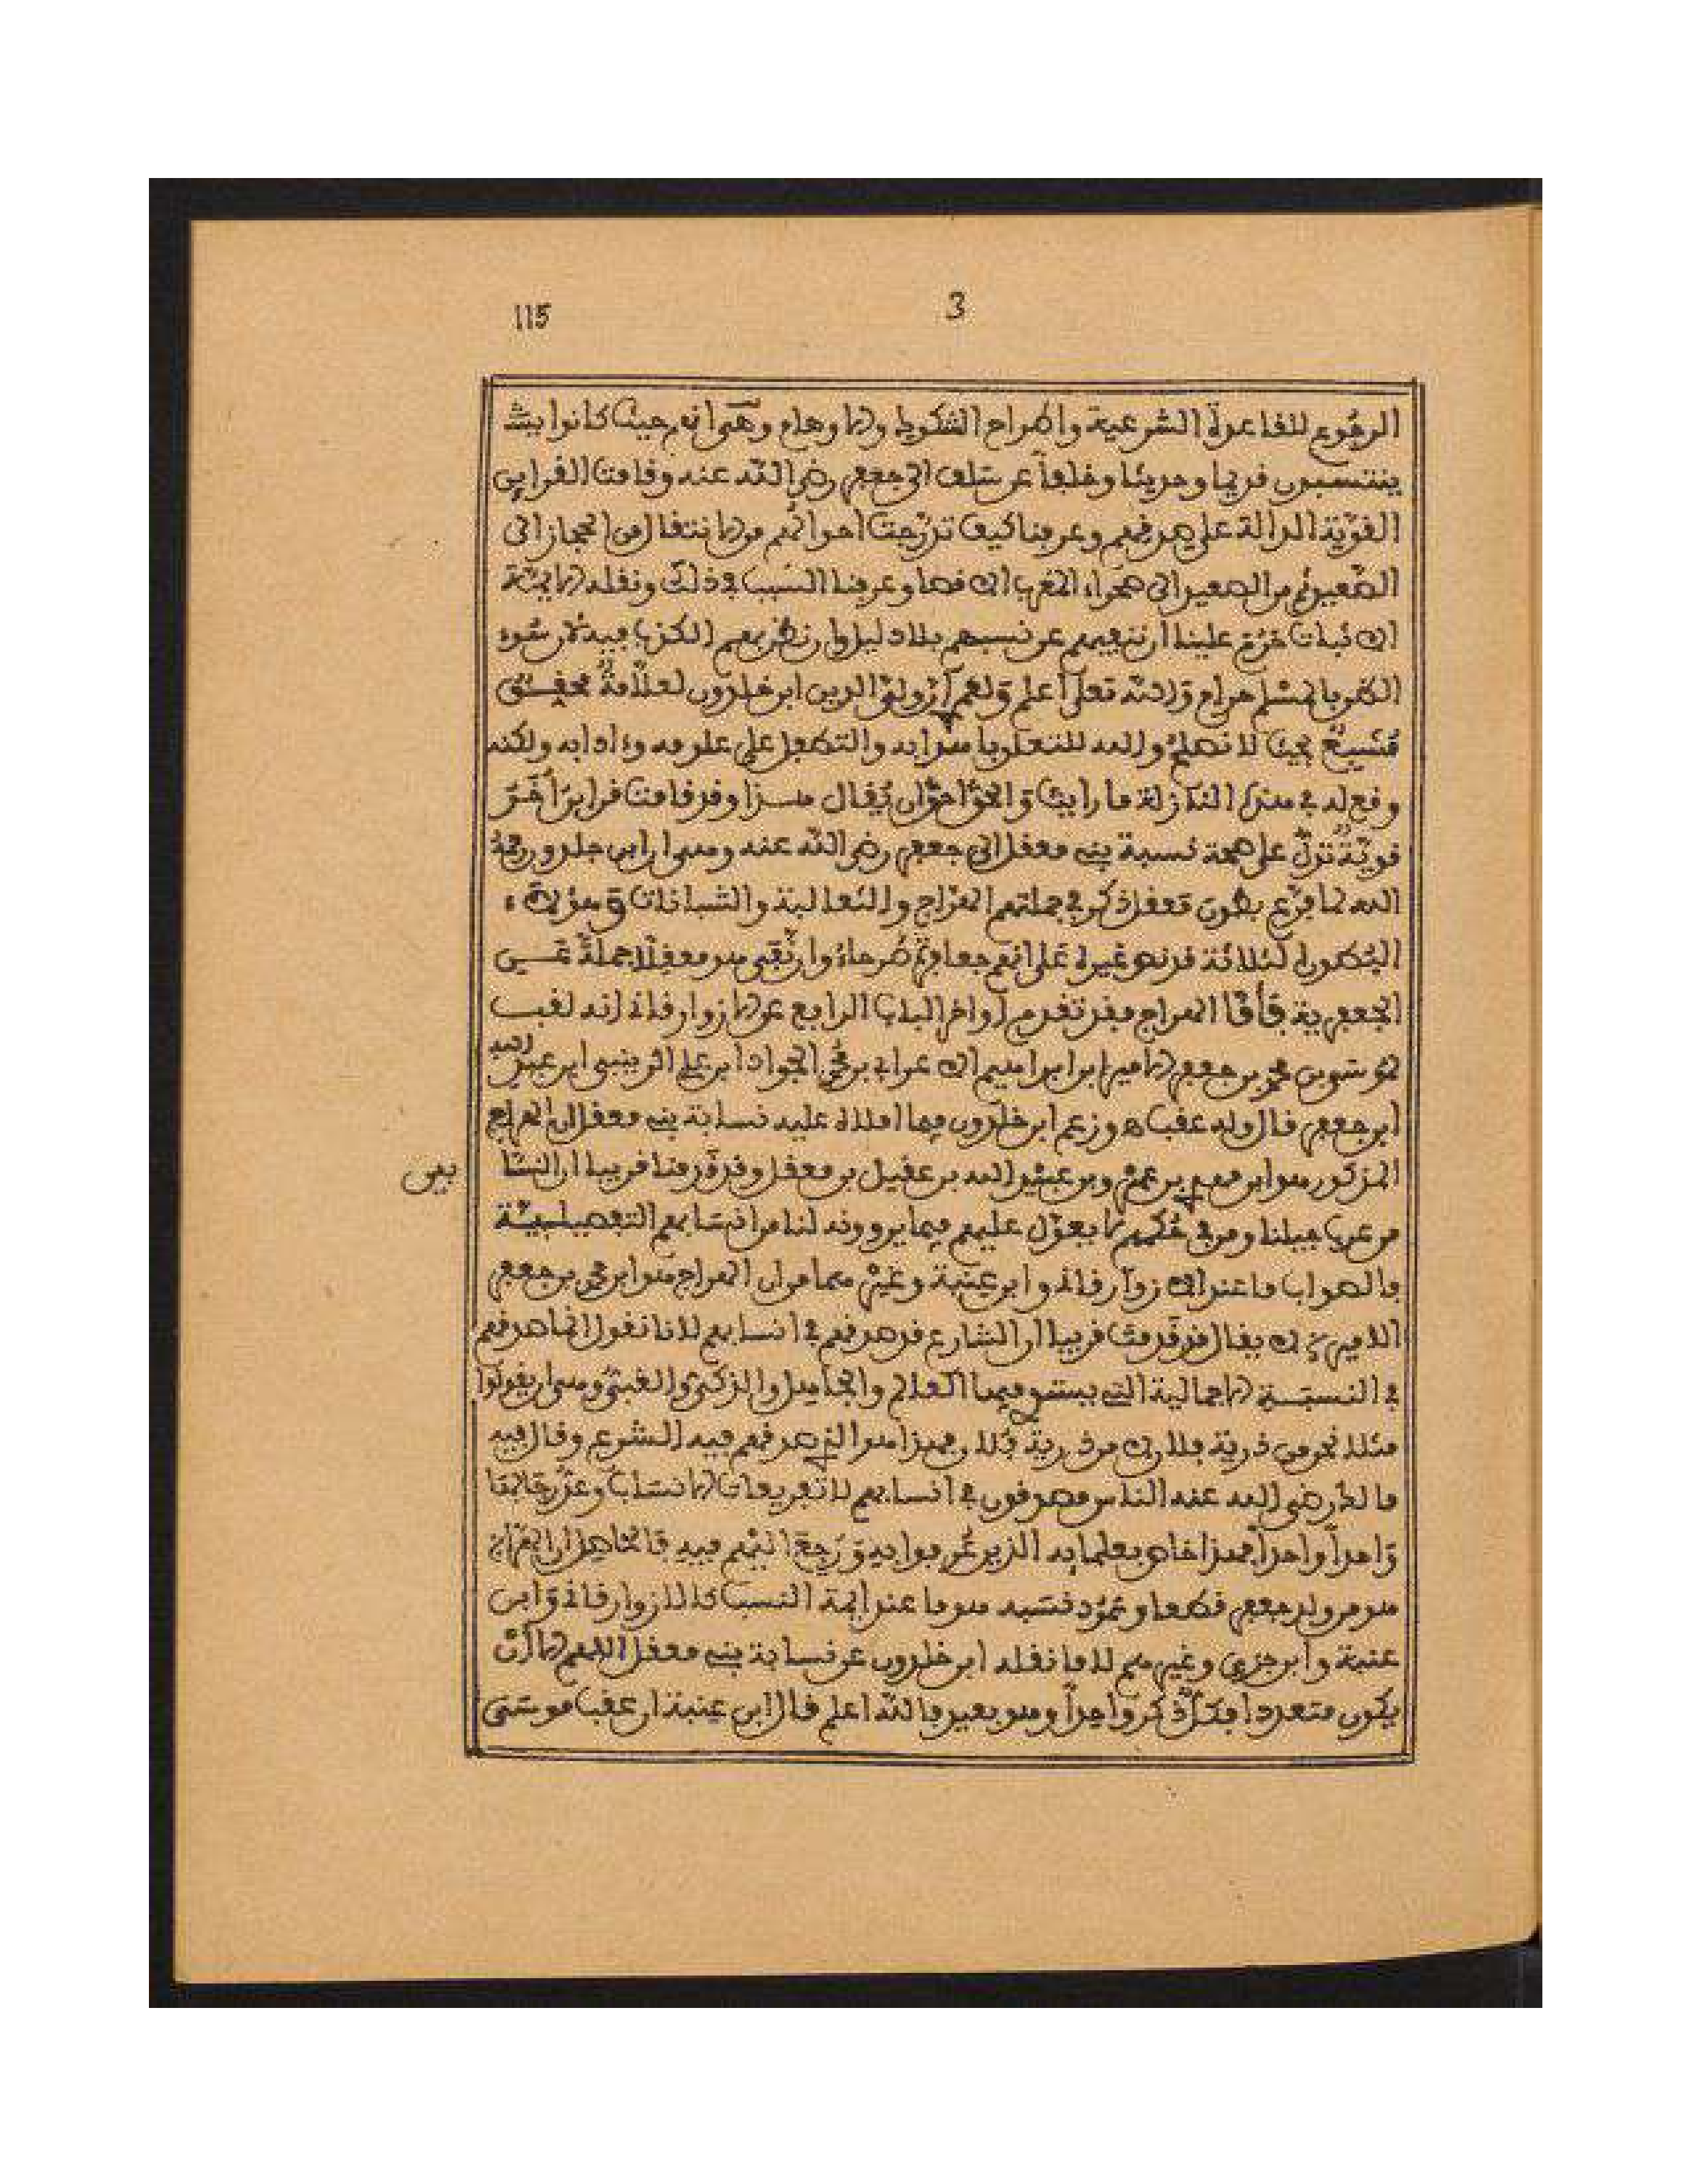 115
3
الرجوع للقاعدة الشرعية واطراح الشكوك والاوهام وهي انهم حيث كانوا
ينتسبون قديما وحديثا وخلفا عن سلف الى جعفر رضي الله عنه وقامت القراين
القوية الدالة على صدقهم وعرفنا كيف تدرجت احوالهم من الانتقال من الحجاز الى
الصعيد ثم من الصعيد الى صحراء المغرب الاقصا وعرفنا السبب في ذلك ونقله الايمة
الاثبات حرم علينا ان ننفيهم عن نسبهم بلا دليل وان نظن بهم الكذب فيه لان سوء
الظن بالمسلم حرام والله تعلى اعلم ولعمر ان ولي الدين ابن خلدون لعلامة محقق
بحيث لا نصلح والله للتعلق باهدابه والتطفل على علومه وءادابه ولكنه
وقع له في هذه النازلة ما رايت والحق احق ان يقال هذا وقد قامت قراين اخر
قوية تدل على صحة نسبة بني معقل الى جعفر رضي الله عنه وهو ان ابن خلدون رحمه
الله لما فرع بطون معقل ذكر في جملتهم العراج والثعالبة والشبانات وهؤلاء
البطون الثلاثة قد نص غيره على انهم جعافرة صرحاء وان بقي من معقل لا جملة غير
الجعفرية فاما العراج فقد تقدم اواخر الباب الرابع عن الازوارقاني انه لقب
لموسى بن محمد بن جعفر الامير ابن ابراهيم الاعرابي بن محمد الجواد ابن علي الزينبي ابن عبد الله
ابن جعفر قال وله عقب اه وزعم ابن خلدون فيما املاه عليه نسابة بني معقل ان العراج
المذكور هو ابن مهدي بن محمد بن عبيد الله بن عقيل بن معقل وقد قدمنا قريبا ان النسا
بين
من عرب جيلنا ومن في حكمهم لا يعول عليهم فيما يروونه لنا من انسابهم التفصيلية
فالصواب ما عند الازوارقاني وابن عنبة وغيرهما من ان العراج هو ابن محمد بن جعفر
الامير لا يقال قد قدمت قريبا ان الشارع قد صدقهم في انسابهم لانا نقول انما صدقهم
في النسبة الاجمالية التي يستوي فيها العالم والجاهل والذكي والغبي وهي ان يقولوا
مثلا نحن من ذرية فلان من ذرية فلان فهذا هو الذي صدقهم فيه الشرع وقال فيه
مالك رضي الله عنه الناس مصدقون في انسابهم لا تفريعات الانساب وعد رجالها
واحدا واحدا فهذا خاص بعلمايه الذين عرفوا به ورجع اليهم فيه فالحاصل ان العراج
هو من ولد جعفر قطعا وعمود نسبه هو ما عند ايمة النسب كالازوارقاني وابن
عنبة وابن حزي وغيرهم لا ما نقله ابن خلدون عن نسابة بني معقل اللهم الا ان
يكون متعددا فكل ذكر واحدا وهو بعيد فالله اعلم قال ابن عنبة ان عقب موسى